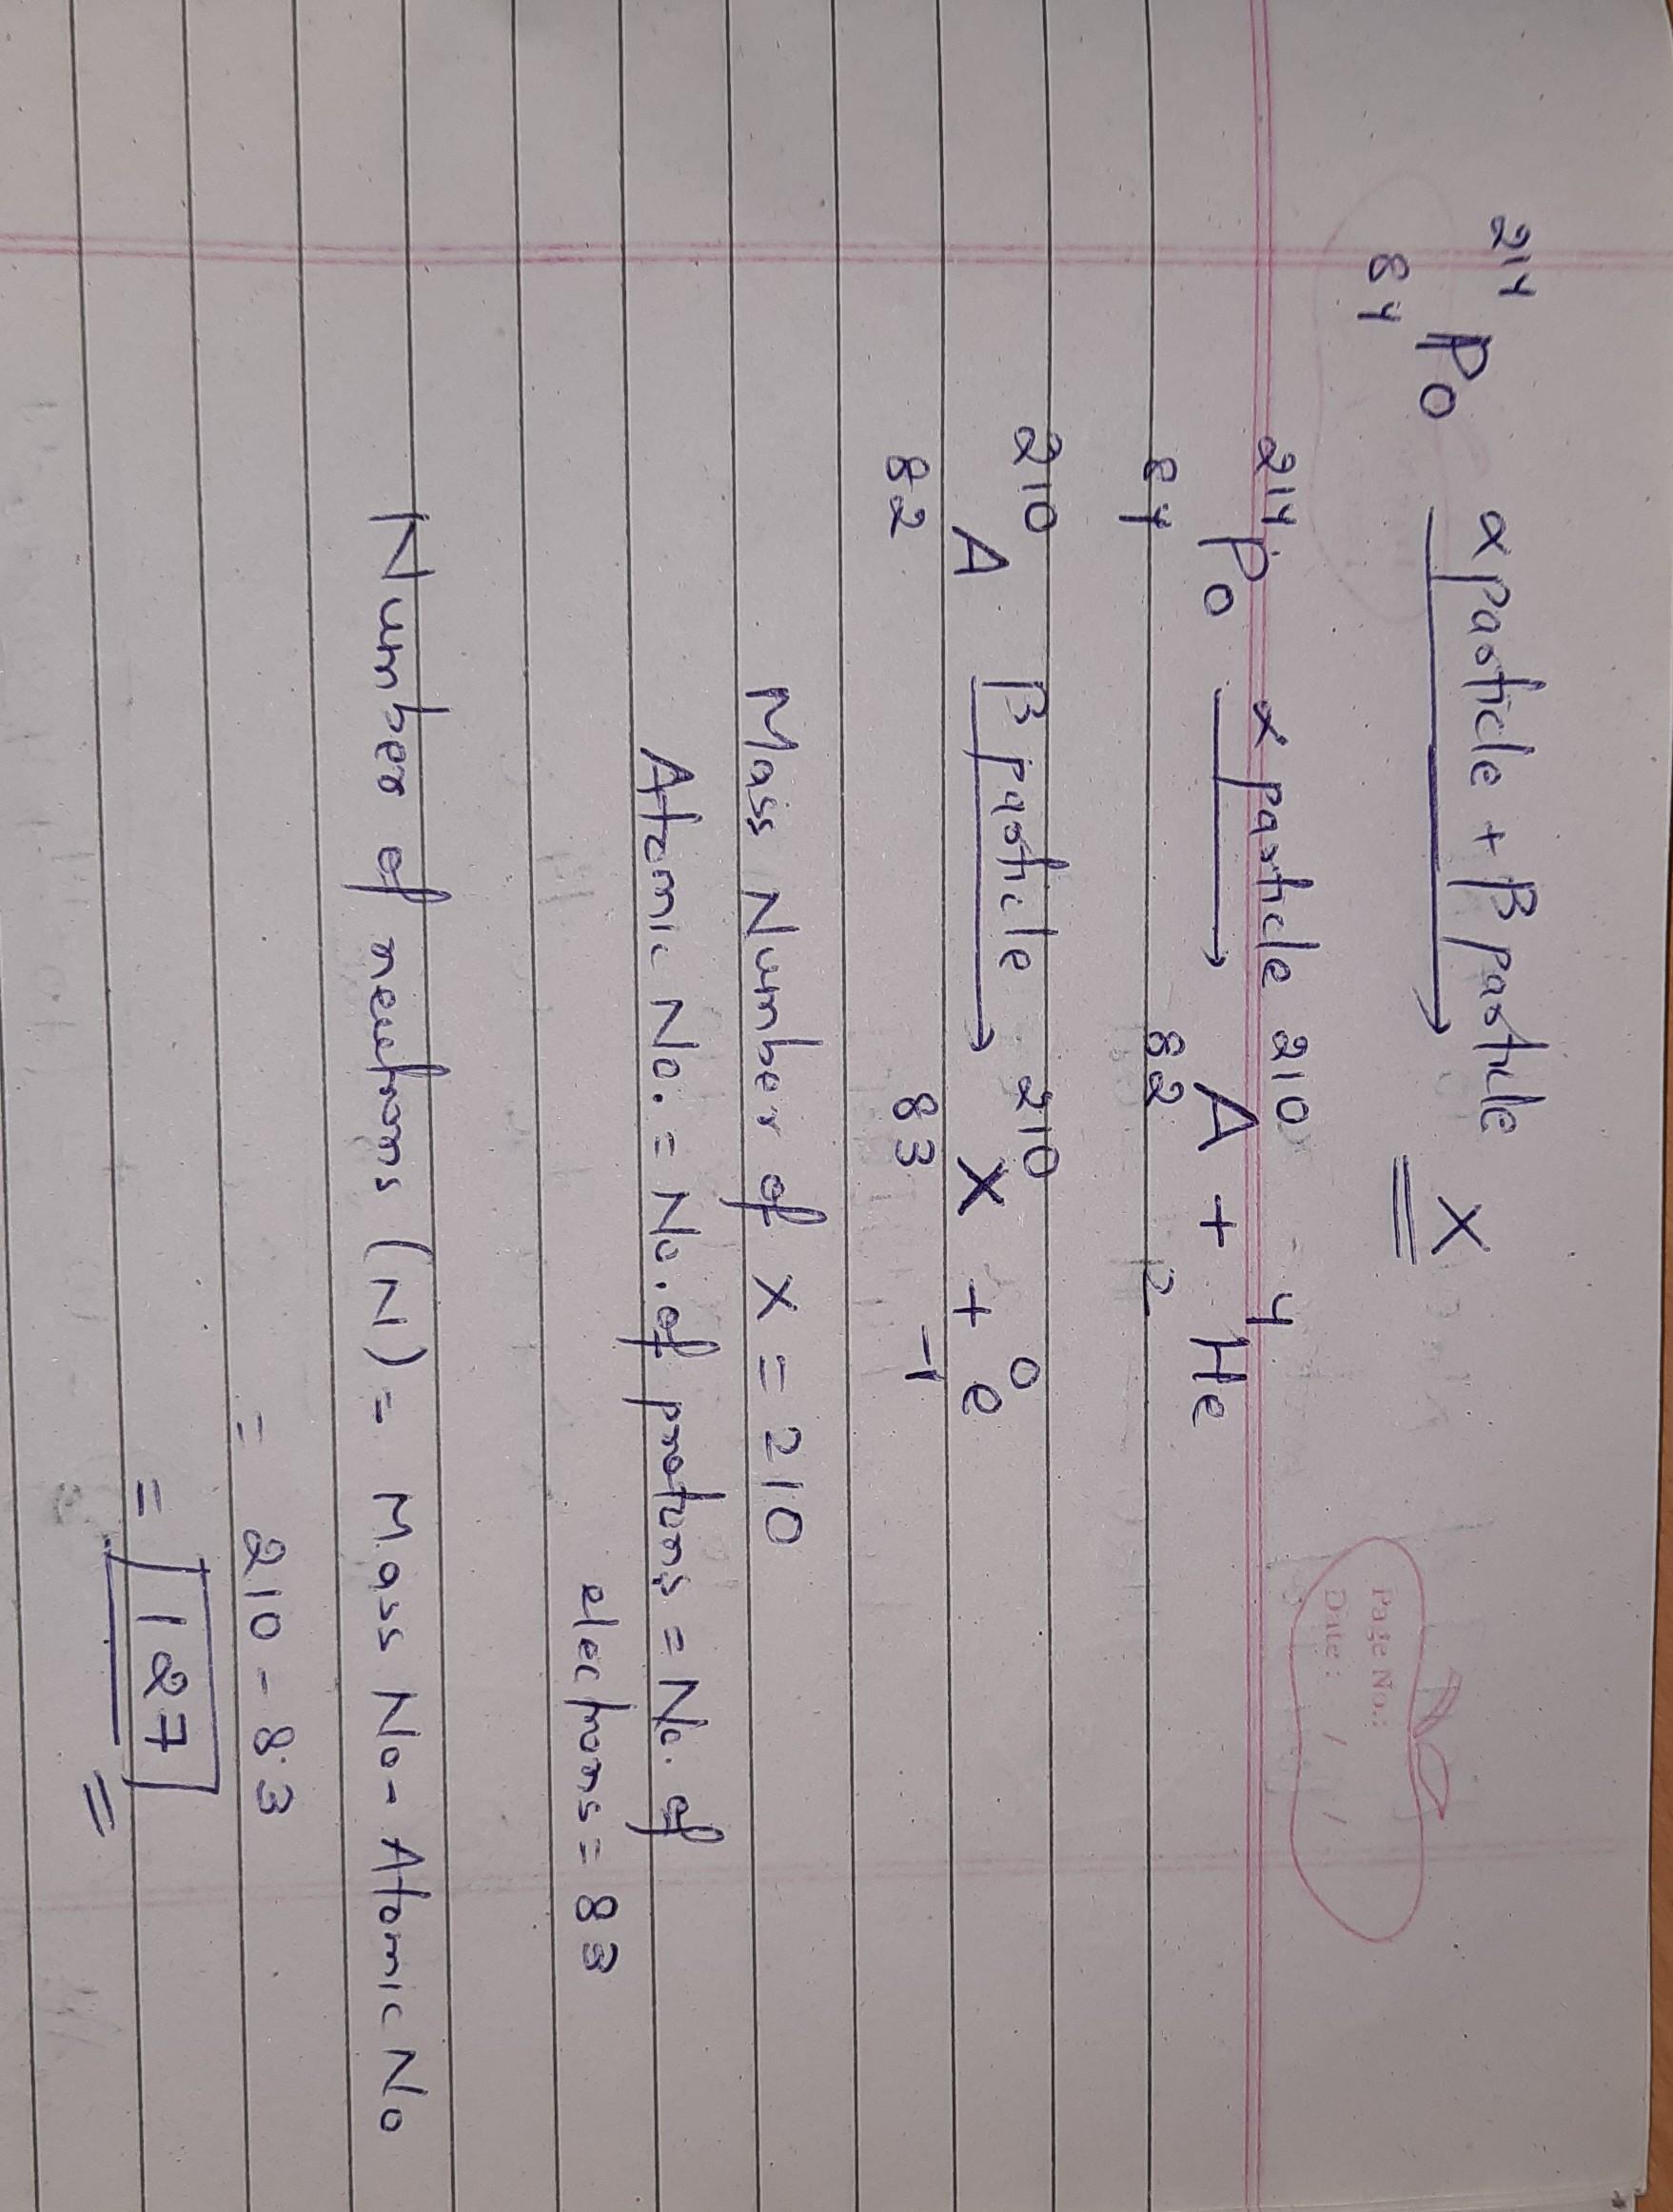 Page No.:
Date: / /
214 84 Po α particle + β particle → X
214 84 Po α particle → 210 82 A + 4 2 He
210 82 A β particle → 210 83 X + 0 -1 e
Mass Number of X = 210
Atomic No. = No. of protons = No. of
electrons = 83
Number of neutrons (N) = Mass No - Atomic No
= 210 - 83
= 127